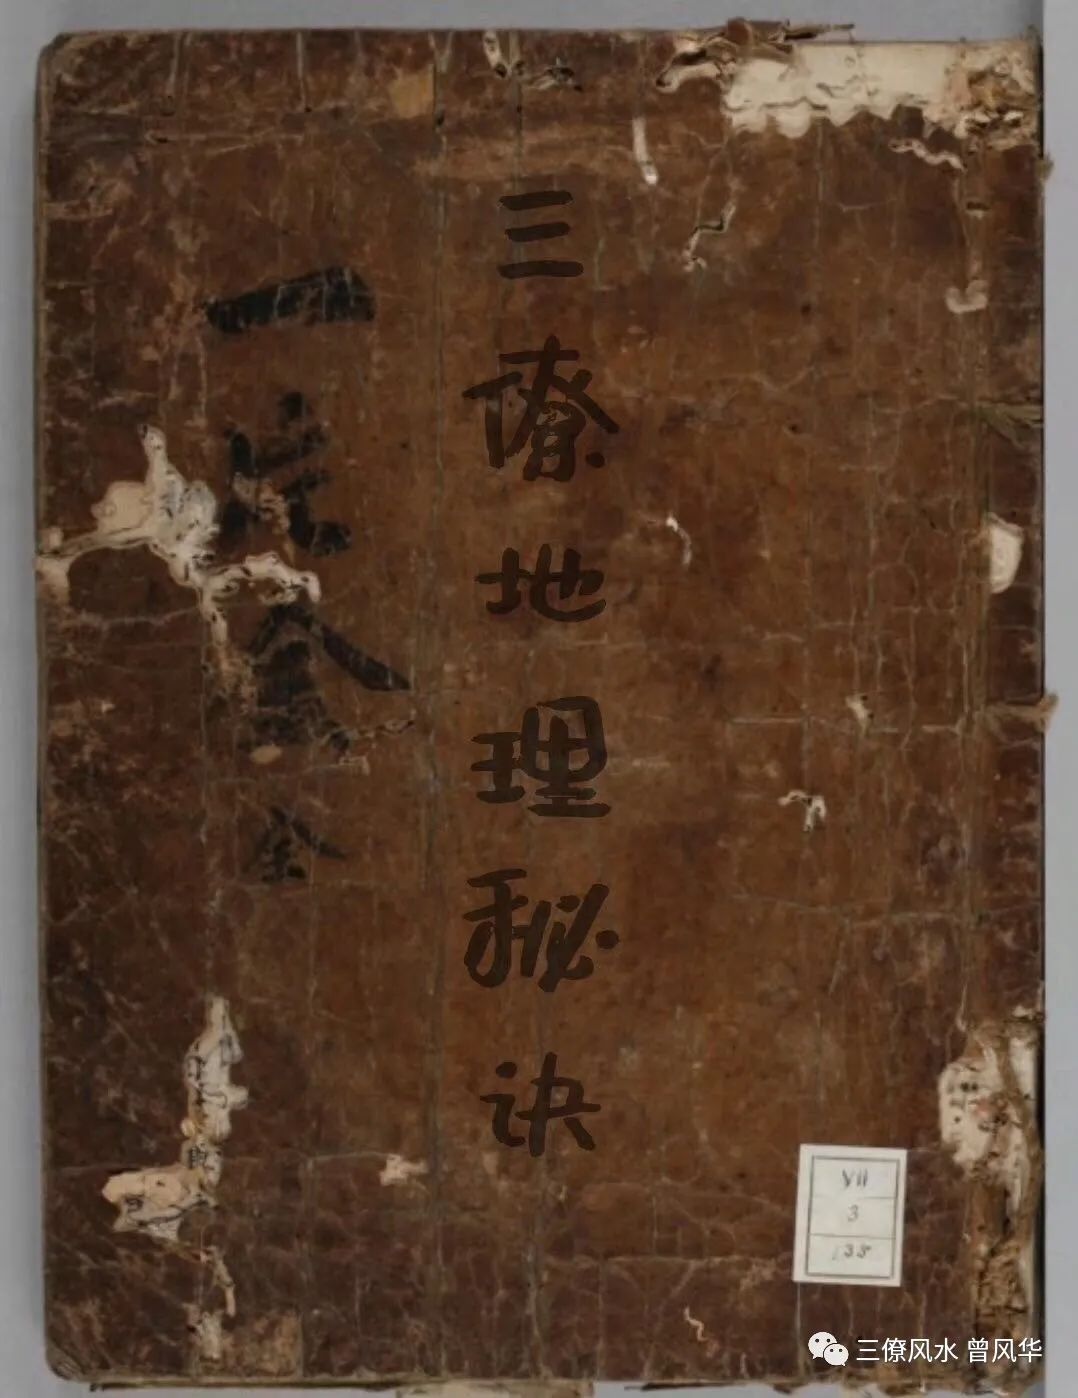 三僚地理秘诀
一金全
VII
3
138
三僚风水 曾风华